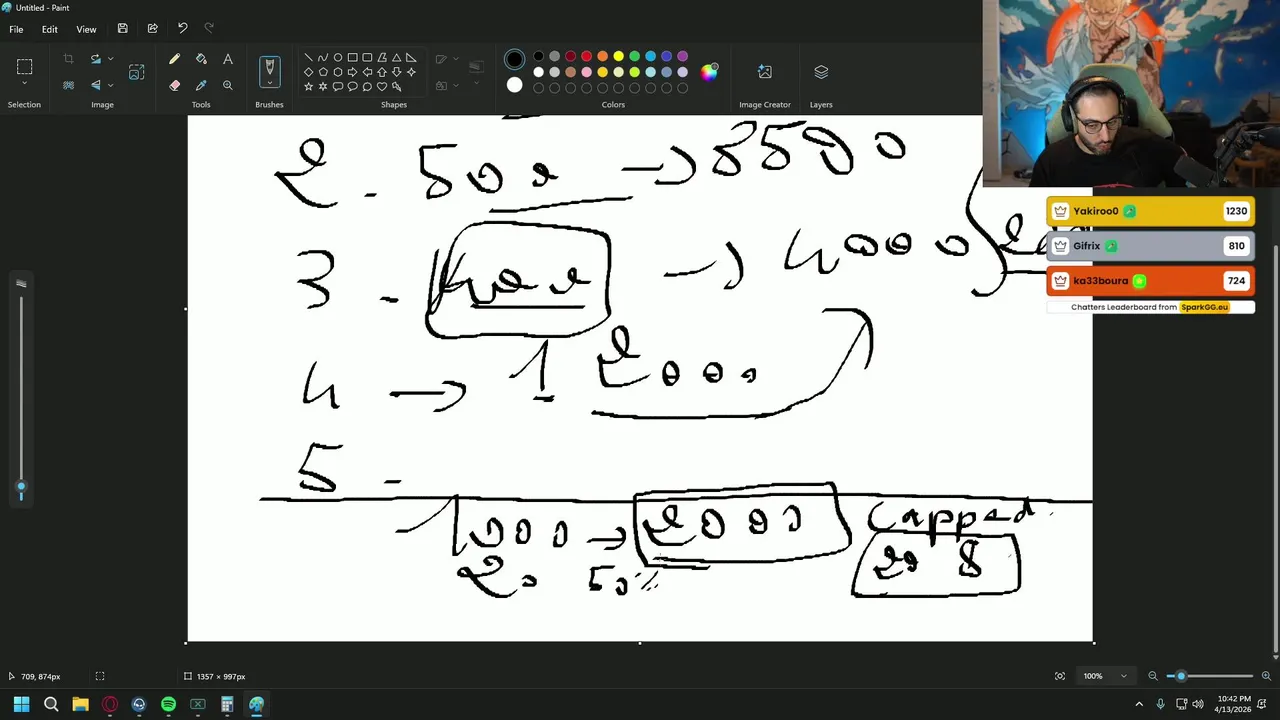 Untitled - Paint
File Edit View
Selection Image Tools Brushes Shapes Colors Image Creator Layers
2. 500 → 3500
3 - 400 → 4000
4 → 1 2000
5 -
1000 → 2000 Capped
20 50% 20 8
Yakiroo0 1230
Gifrix 810
ka33boura 724
Chatters Leaderboard from SparkGG.eu
709, 874px 1357 × 997px 100%
10:42 PM
4/13/2026